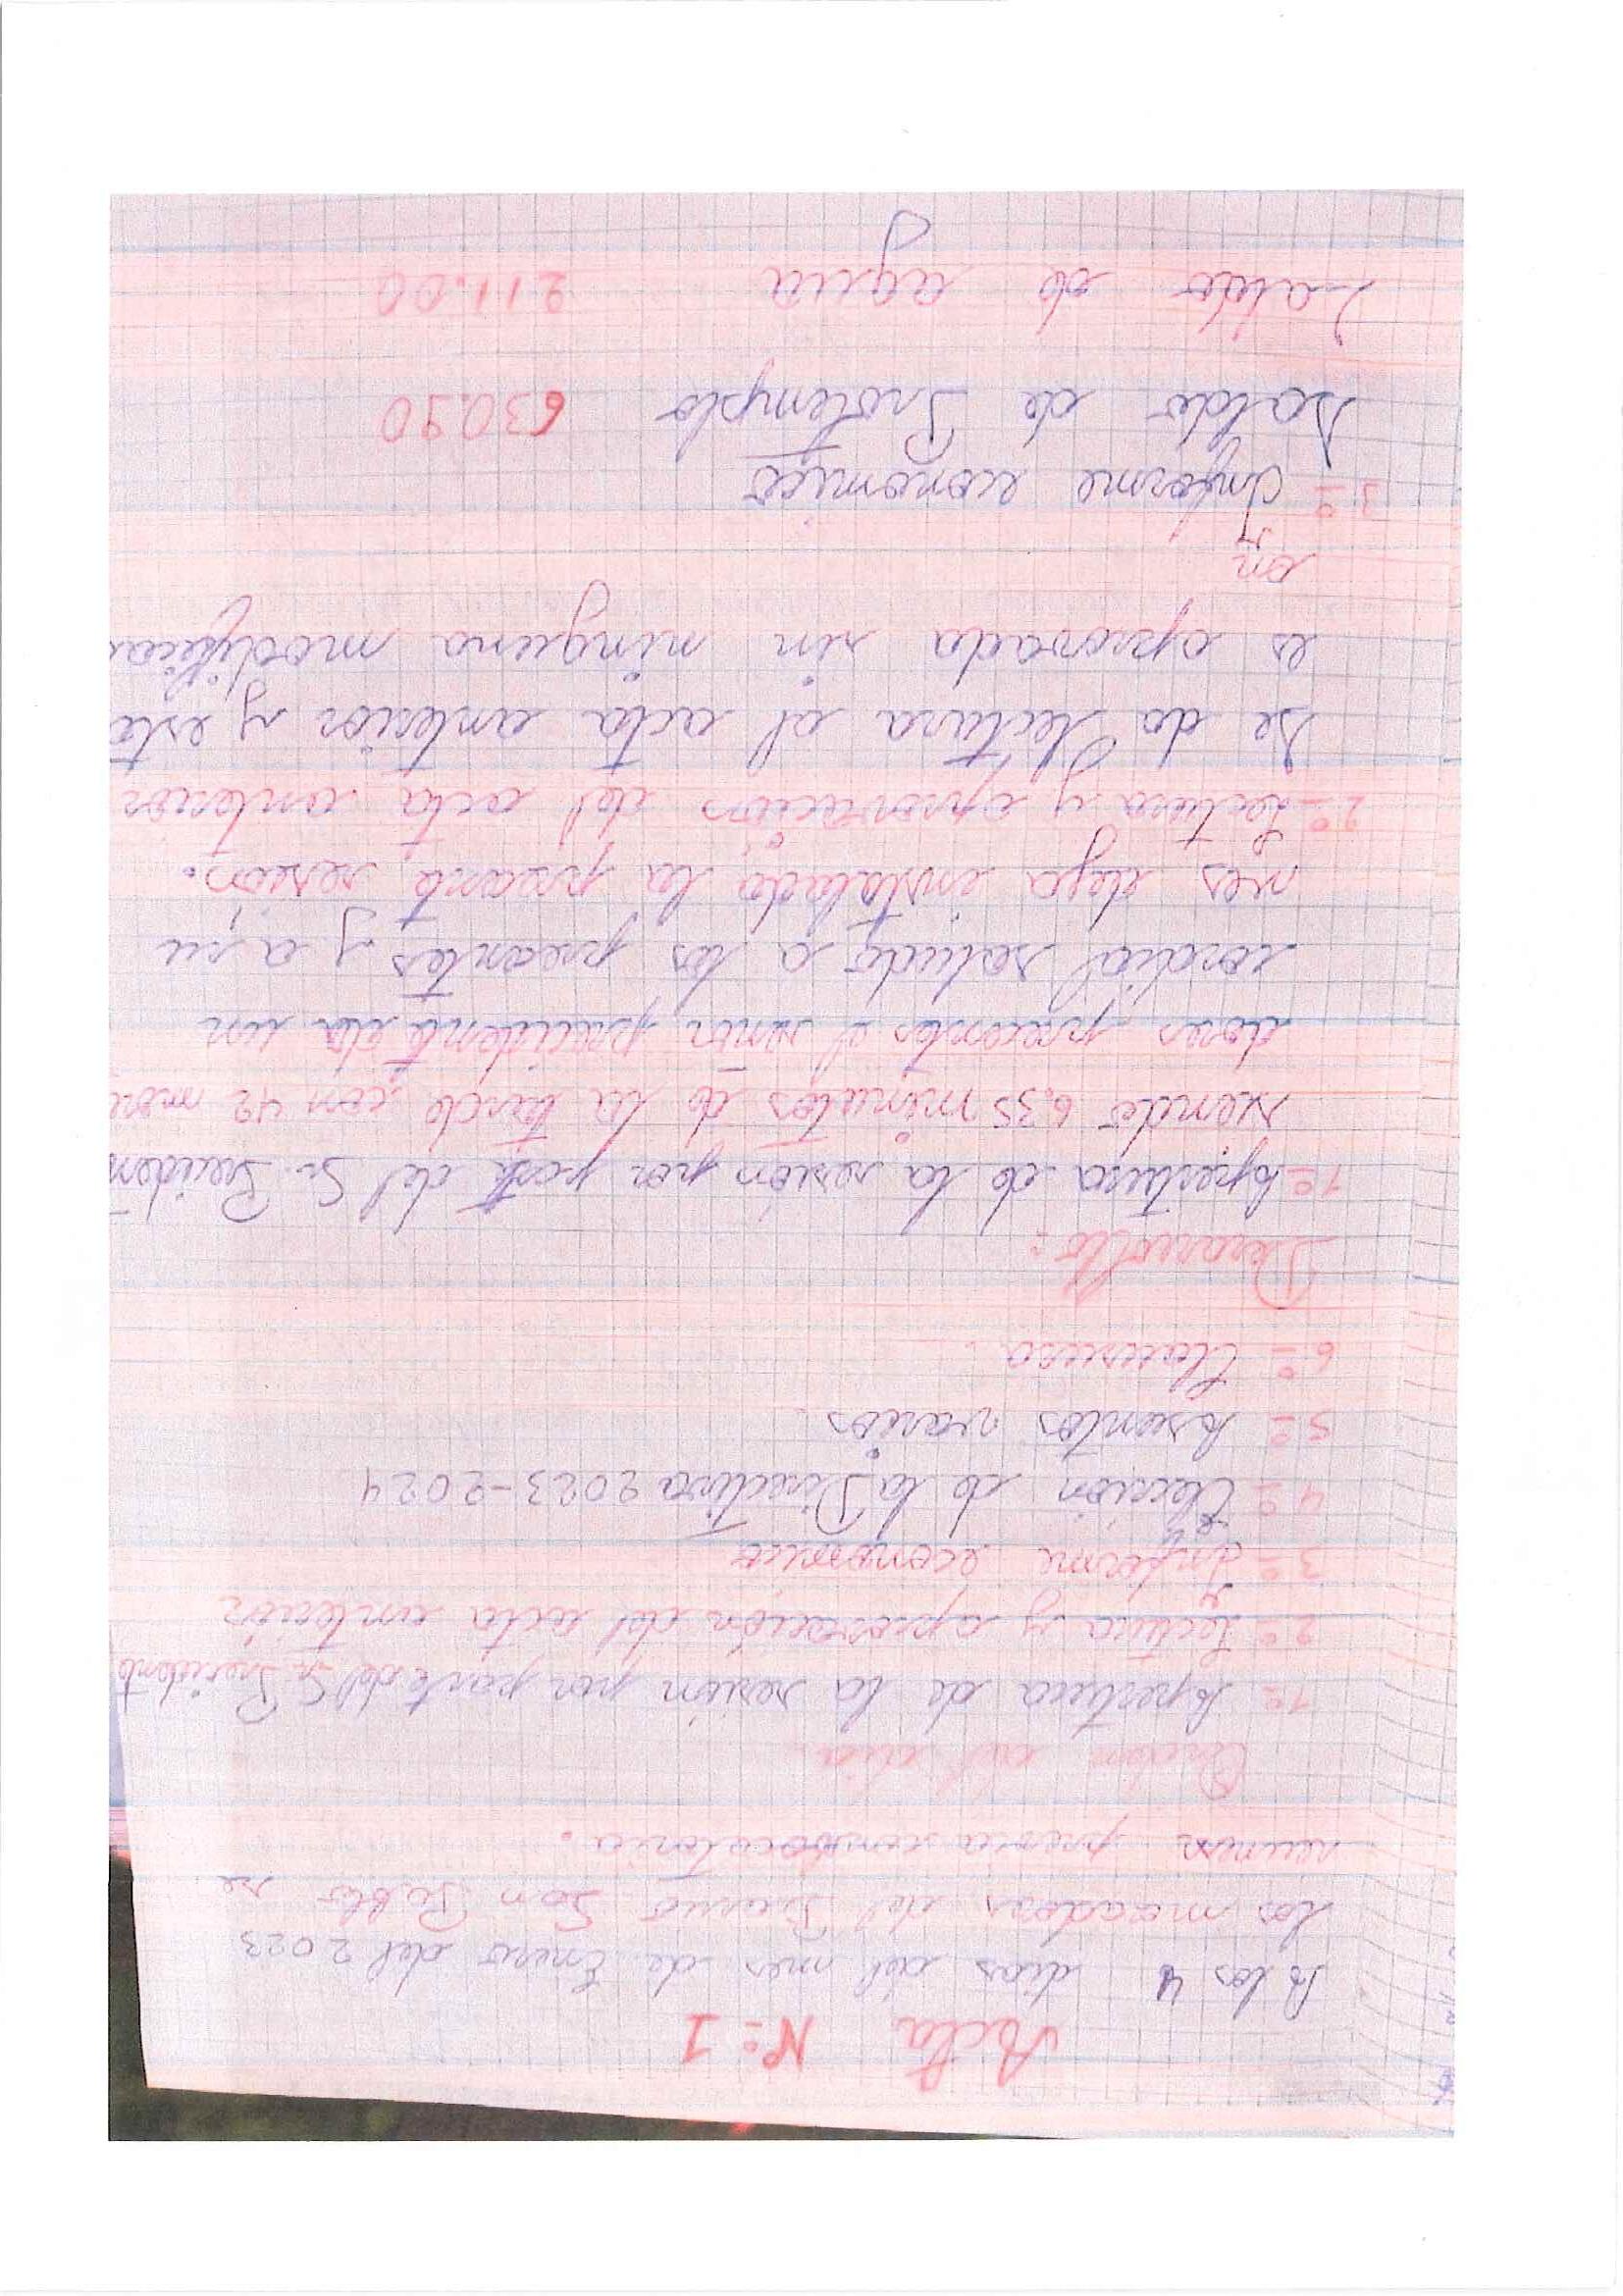 Acta Nº 1
A los 4 dias del mes de Enero del 2023
los moradores del Barrio San Pablo se
reunen previa convocatoria.
Orden del dia.
1º Apertura de la sesión por parte del Sr. Presidente
2º Lectura y aprovación del acta anterior
3º Informe economico
4º Elección de la Directiva 2023-2024
5º Asuntos varios.
6º Clausura.
Desarrollo:
1º Apertura de la sesión por parte del Sr. Presiden
siendo 6,35 minutos de la tarde con 42 mora
dores precentes el señor precidente da un
cordial saludo a los precentes y a su
ves deja instalada la precente sesión.
2º Lectura y aprovación del acta anterior
Se da lectura al acta anterior y esta
es aprovada sin ninguna modificaci
on
3º Informe economico
Saldo de Protemplo 630.90
Saldo de agua 211.00